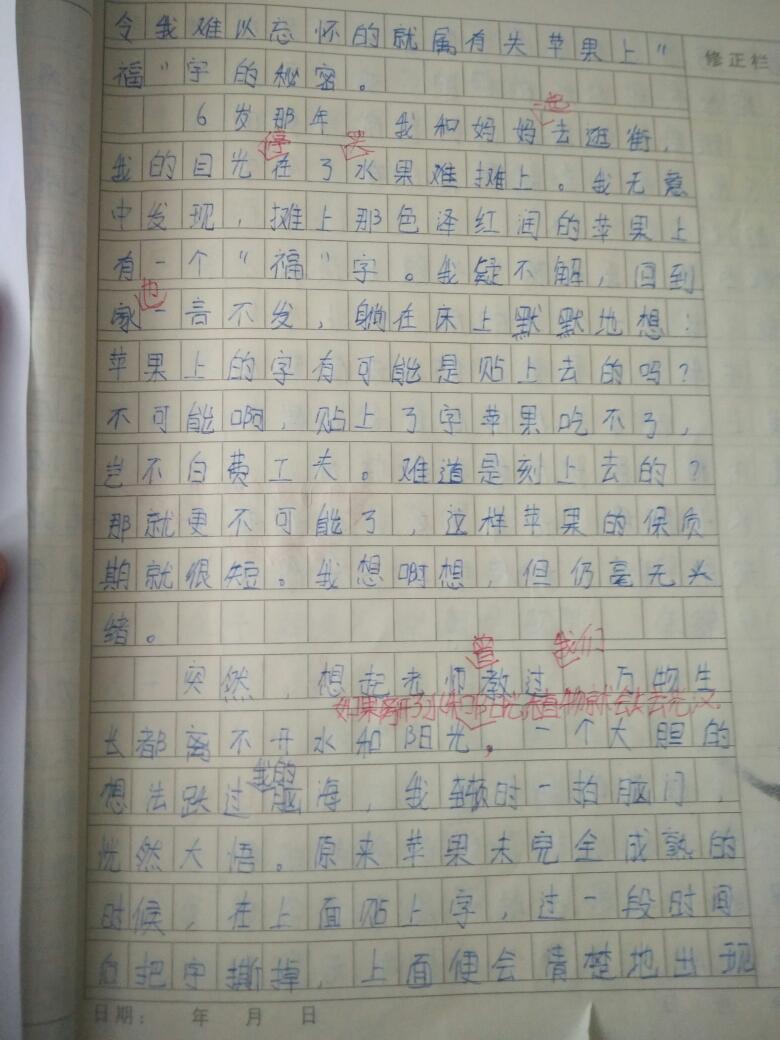 令我难以忘怀的就属有关苹果上"
修正栏
福"字的秘密。
也
6岁那年 我和妈妈去逛街,
停
我的目光在了水果难摊上。我无意
中发现,摊上那色泽红润的苹果上
有一个"福"字。我疑不解,回到
也
家一言不发,躺在床上默默地想:
苹果上的字有可能是贴上去的吗?
不可能啊,贴上了字苹果吃不了,
岂不白费工夫。难道是刻上去的?
那就更不可能了,这样苹果的保质
期就很短。我想啊想,但仍毫无头
绪。
曾 我们
突然,想起老师教过 万物生
如果离开了水和阳光,植物就会失去
长都离不开水和阳光。一个大胆的
我的
想法跌过脑海,我顿时一拍脑门,
恍然大悟。原来苹果未完全成熟的
时候,在上面贴上字,过一段时间
后把字撕掉,上面便会清楚地出现
日期: 年 月 日